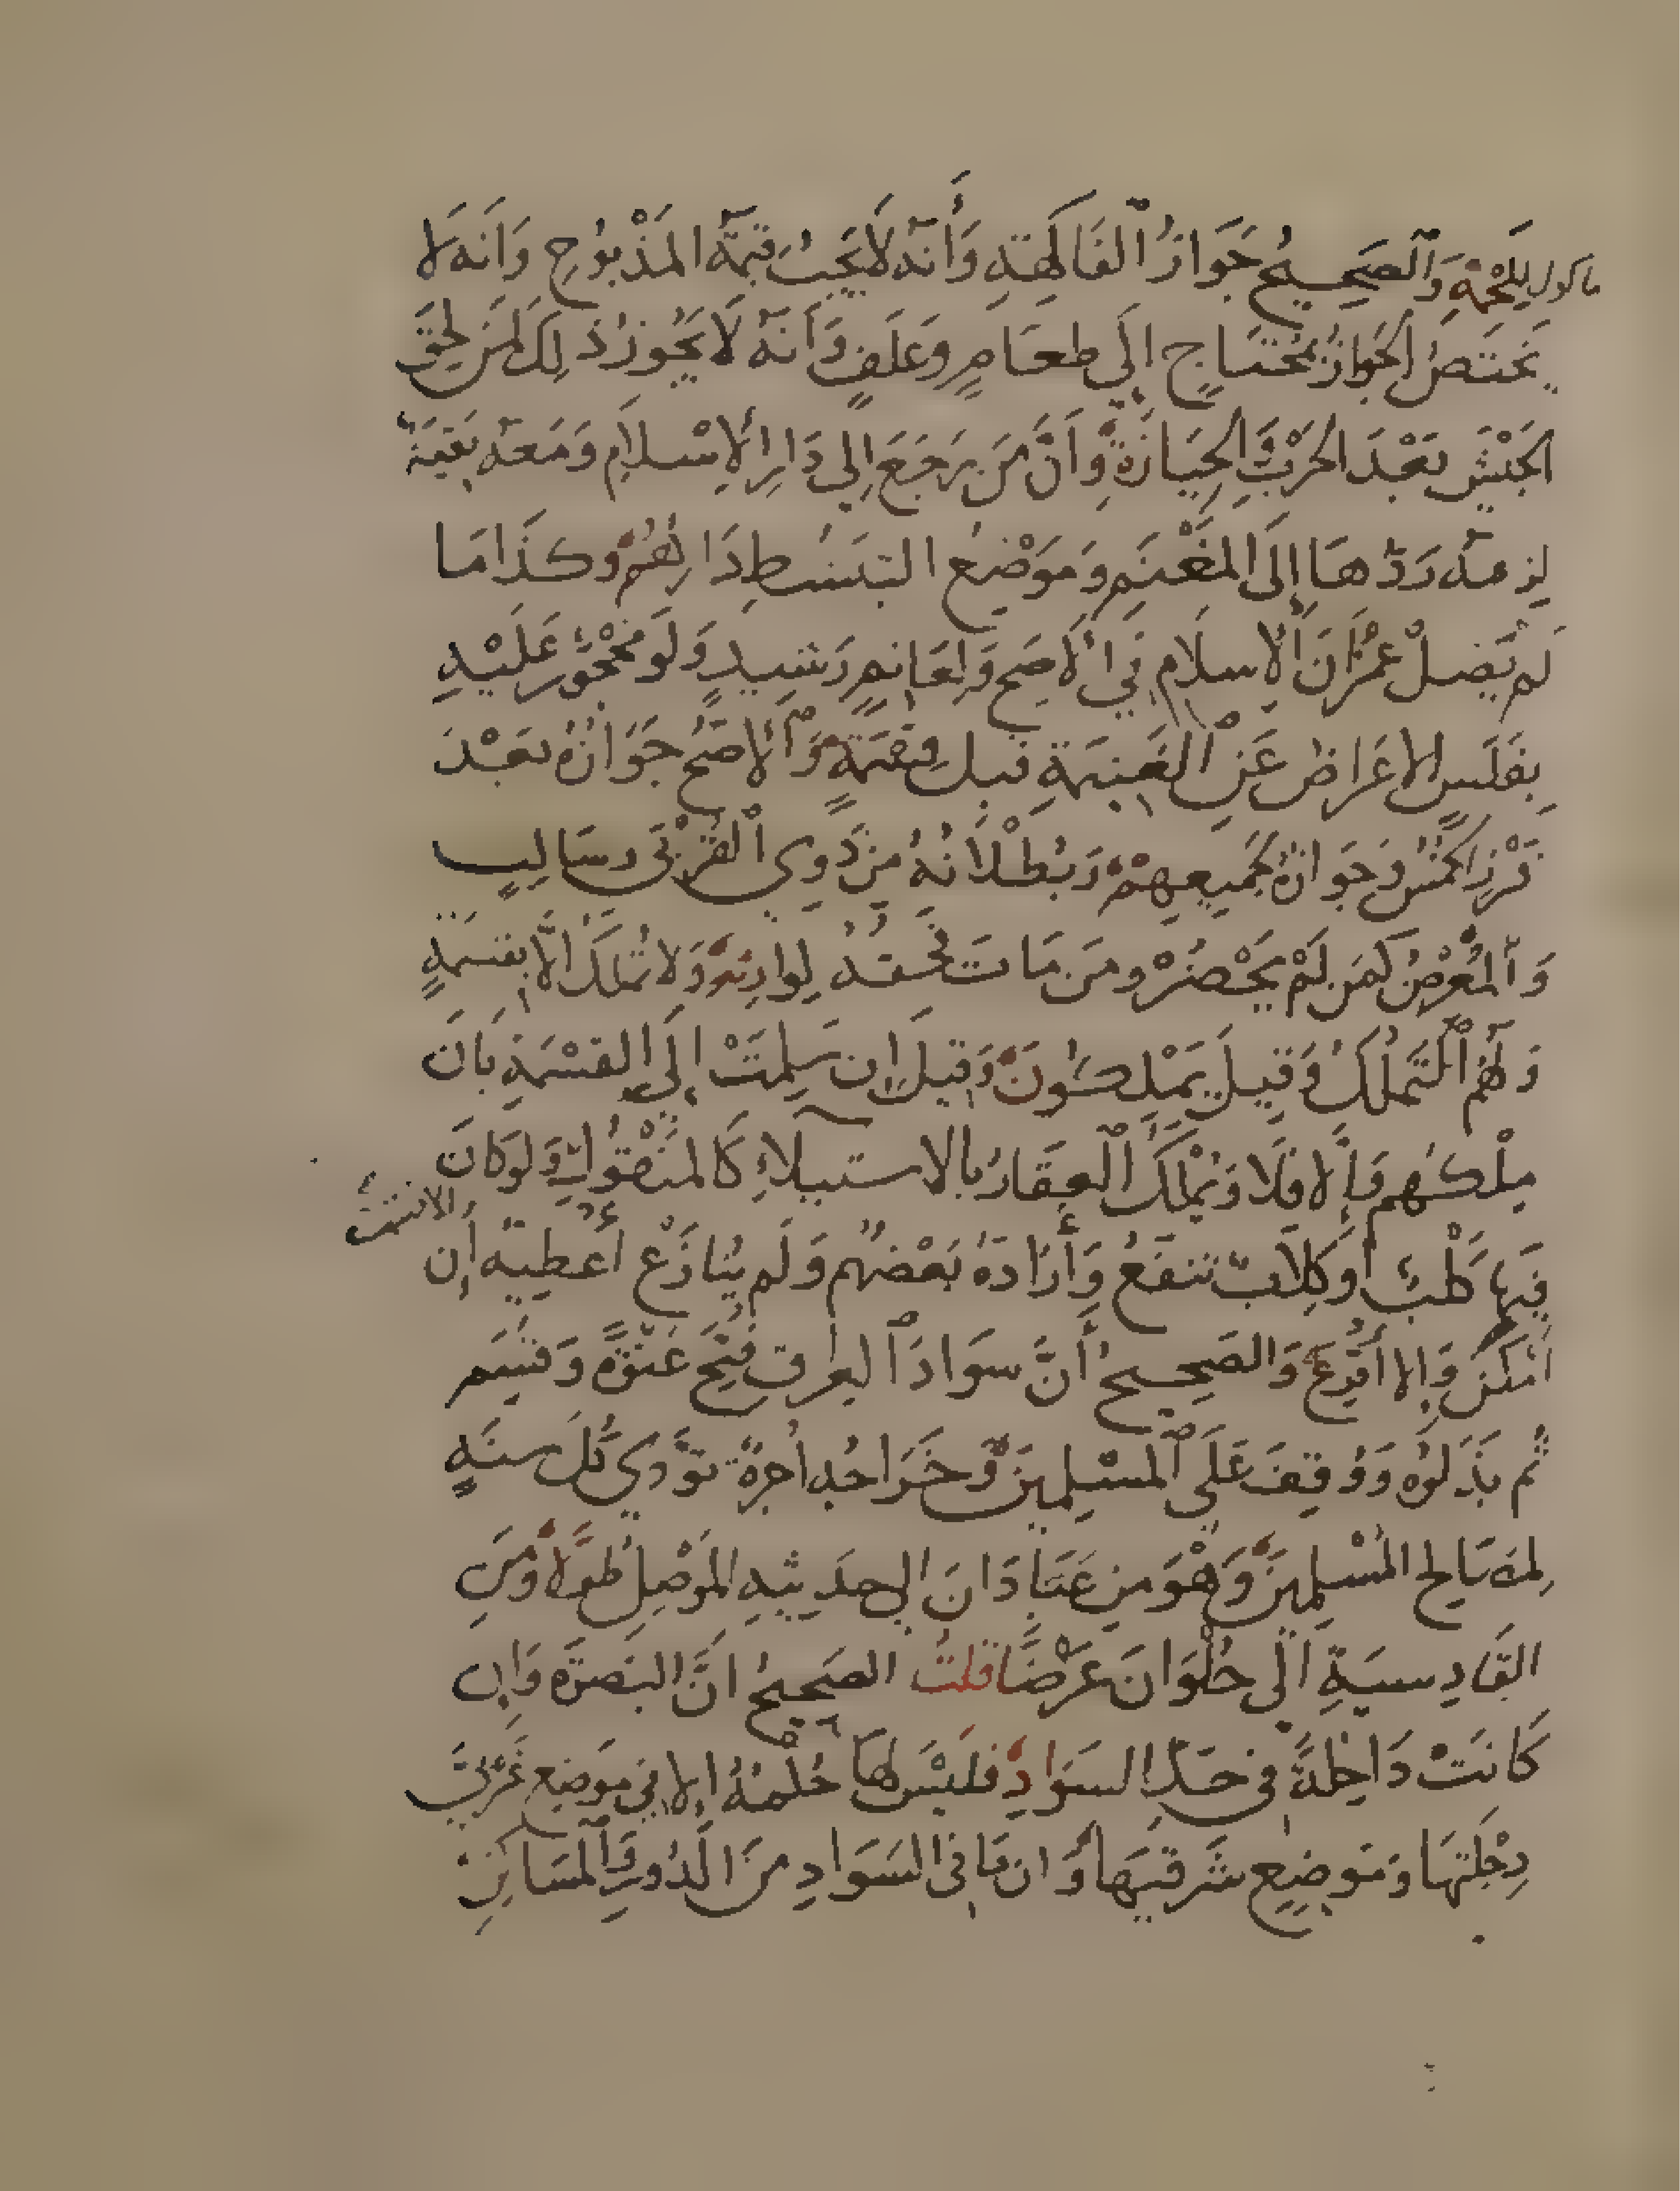 ماكول للحمه وَالصَحِيحُ جَوَازُ الفَاكِهَةِ وَأَنه لَا يَجِبُ قيمَةُ المَذْبُوحِ وَأنه لَا
يَختَصُ الجَوازُ بمُحْتَاجٍ إلَى طعَامٍ وعَلَفٍ وَأنهُ لَا يَجُوزُ ذلِكَ لمَن لحِقَ
الجَيْشَ بَعْدَ الحَرْبِ وَالحِيَازَةِ وَأَنَّ مَن رَجَعَ إلى دَارِ الإسْلَامِ وَمَعَهُ بَقيَةٌ
لزمهُ رَدُّهَا إلَى المَغْنَمِ وَمَوْضِعُ التبَسُطِ دَارهُمْ وكذَا مَا
لم يَصِلْ عمْرَانَ الإسلَام في الأصَحِ وَلِغَانِمٍ رَشِيدٍ وَلَو مَحْجُورٍ عَلَيْهِ
بِفَلَسٍ الاعرَاضُ عَنِ الغَنِيمَةِ قبل قِسْمَةٍ وَالأصَحُ جَوَازُهُ بَعْدَ
فَرْزِ الخُمُسِ وَجَوَازهُ لجَمِيعِهِمْ وَبُطْلَانُهُ مِن ذَوِي القُرْبَى وسَالِبٍ
وَالمُعْرِضُ كمَن لَمْ يَحْضُرْ ومَن مَاتَ فحَقهُ لوارثهِ وَلا تُملَكُ إلَّا بقسمَةٍ
وَلهُمُ التَمَلُّكُ وَقِيلَ يَمْلِكُونَ وَقيلَ إن سَلِمَتْ إلَى القسْمَةِ بَانَ
مِلْكهُم وَإلا فَلَا وَيُمْلَكُ العَقَارُ بالاستيلاءِ كَالمنْقُولِ وَلوكَانَ
فِيهَا كَلْبٌ أو كِلَابٌ تنفَعُ وَأَرَادَهُ بَعْضهُم وَلَم يُنَازَع أعْطيهُ إن
أمكَنَ وَإلا أقْرِعَ وَالصَحِيحُ أنَّ سَوَادَ العِرَاق فُتِحَ عَنْوَةً وَقُسِمَ
ثم بَذَلوُه وَوُقِفَ عَلَى المسْلِمِينَ وَخَرَاجُه أجرَةٌ تؤَدى كُل سنَةٍ
لمصَالحِ المُسْلِمِينَ وَهْوَ مِن عَبَادَانَ إلى حدَيثهِ المَوْصِلِ طُولًا وَمِنَ
القَادِسيَةِ إلى حُلْوَانَ عَرْضًا قلتُ الصَحِيحُ أنَّ البَصرَةَ وَإن
كَانَتْ دَاخِلةً في حَدِّ السَوَادِ فليْسَ لهَا حُكْمُهُ إلا في مَوضِع غَرْبيِّ
دِجْلَتِهَا وَمَوضِعٍ شَرقِيهَا وَان مَا في السَوَادِ مِنَ الدُورِ وَالمَسَاكِنِ